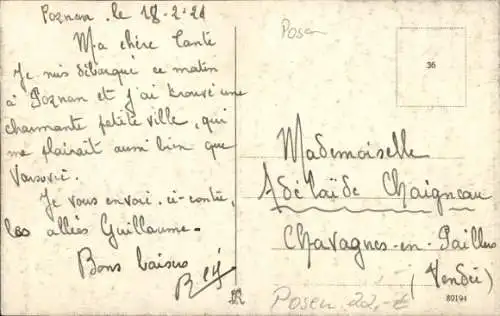 Poznan. le 18-2-21
Ma chère tante
Je suis débarqué ce matin
à Poznan et j'ai trouvé une
charmante petite ville, qui
me plairait aussi bien que
Varsovie.
Je vous envoie ci-contre,
les allées Guillaume.
Bons baisers
Posen
36
Mademoiselle
Adelaïde Chaigneau
Chavagnes-en-Paillers
(Vendée)
Posen 22,-€
80194